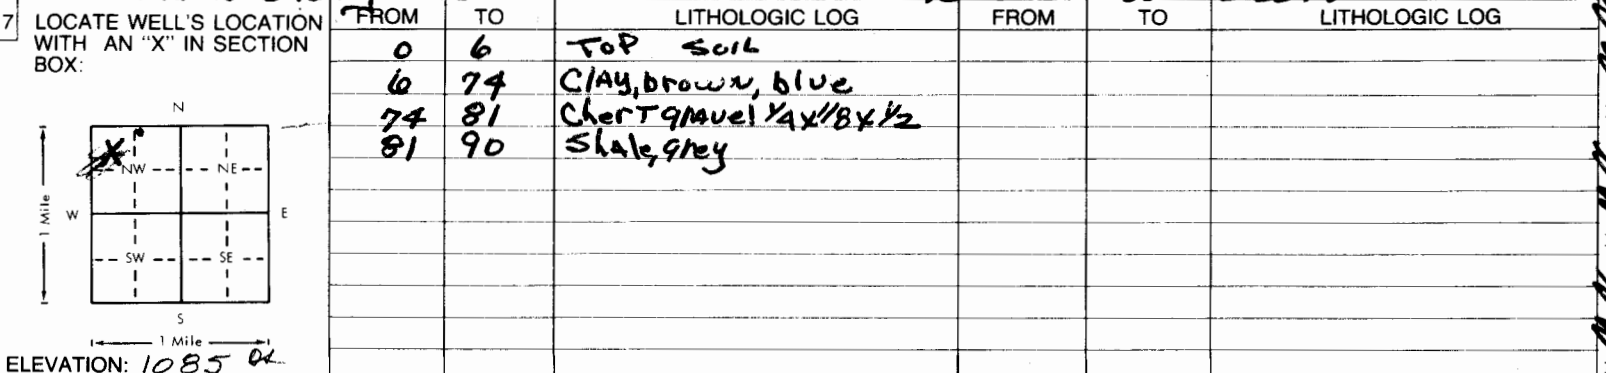 7 LOCATE WELL'S LOCATION WITH AN "X" IN SECTION BOX:
N
X
NW NE
W E
SW SE
S
1 Mile
1 Mile
ELEVATION: 1085
FROM TO LITHOLOGIC LOG FROM TO LITHOLOGIC LOG
0 6 TOP SOIL
6 74 Clay, brown, blue
74 81 Chert gravel 1/4 x 1/8 x 1/2
81 90 Shale, grey